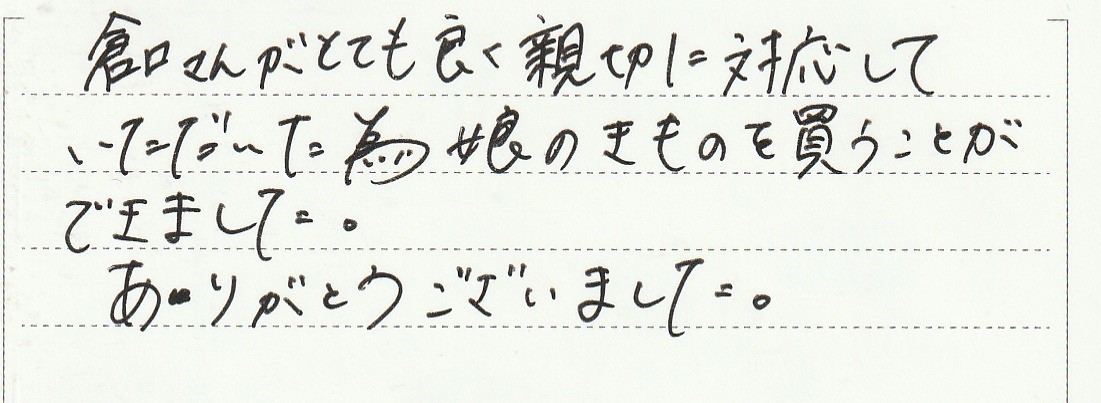 倉口さんがとても良く親切に対応して
いただいた為娘のきものを買うことが
できました。
ありがとうございました。